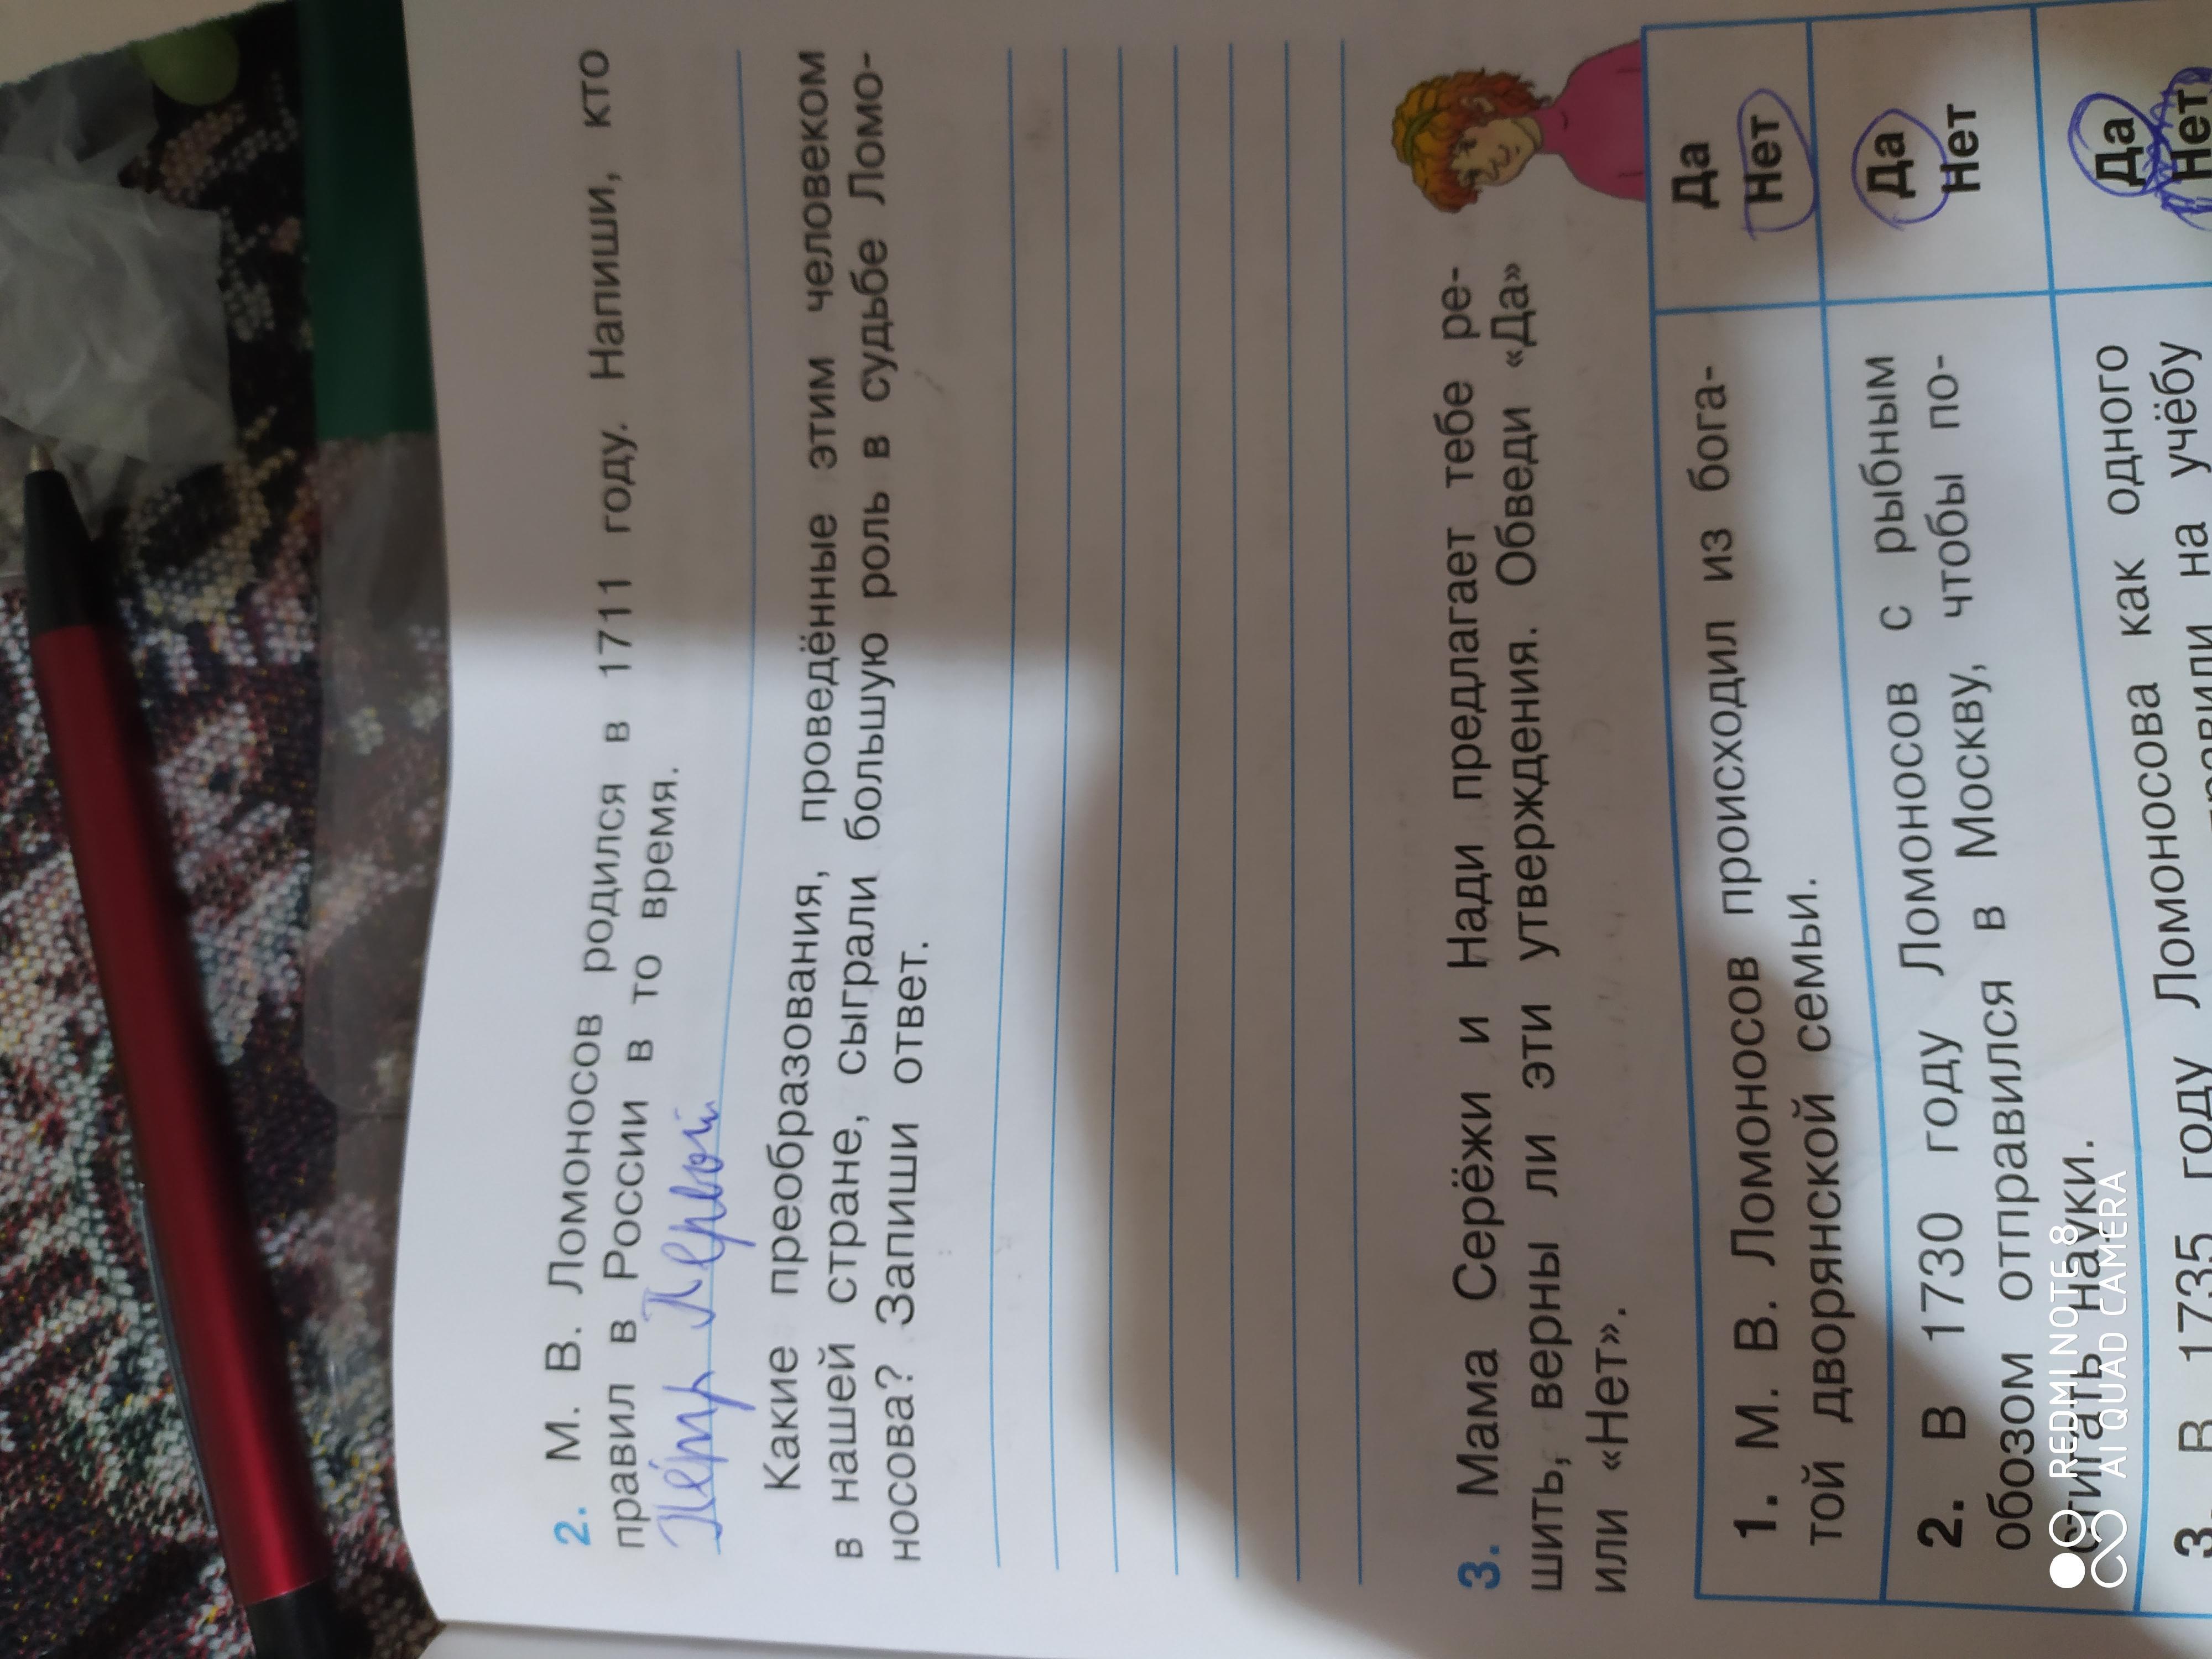 2. М. В. Ломоносов родился в 1711 году. Напиши, кто
правил в России в то время.
Пётр Первый
Какие преобразования, проведённые этим человеком
в нашей стране, сыграли большую роль в судьбе Ломо-
носова? Запиши ответ.
3. Мама Серёжи и Нади предлагает тебе ре-
шить, верны ли эти утверждения. Обведи «Да»
или «Нет».
1. М. В. Ломоносов происходил из бога-
той дворянской семьи.
Да
Нет
2. В 1730 году Ломоносов с рыбным
обозом отправился в Москву, чтобы по-
стигать науки.
Да
Нет
3. В 1735 году Ломоносова как одного
на учёбу
Да
Нет
REDMI NOTE 8
AI QUAD CAMERA